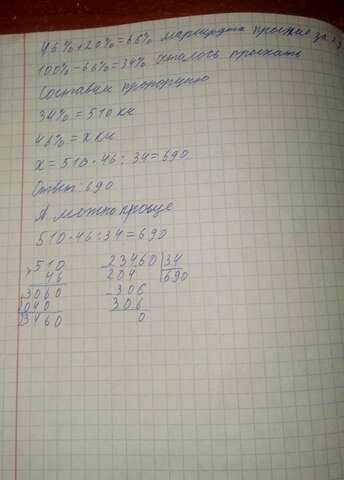 46%+20%=66% маршрута проехие за
100%-66%=34% осталось проехать
Составим пропорцию
34%=510км
46%=х км
х=510·46:34=690
Ответ:690
А можно проще
510·46:34=690
510 23460 34
46 204 690
3060 306
040 306
3460 0